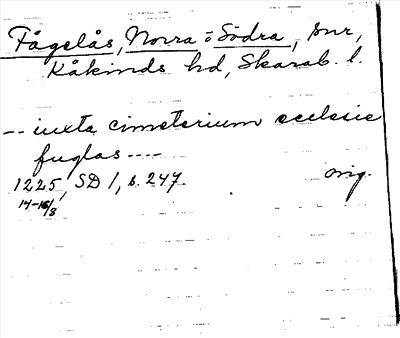 Fågelås, Norra o Södra, snr,
Kåkinds hd, Skarab. l.
-- iuxta cimeterium ecclesie
fuglas ----
1225, SD 1, s. 247. orig.
14-16/8